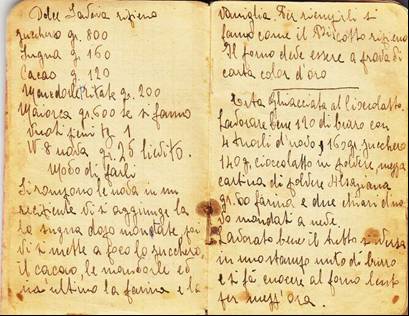 Dolce Savoia ripieno
Zucchero gr. 800
Sugna gr. 160
Cacao gr. 120
Mandorle tritate gr. 200
Maiorca gr. 600 se si fanno
vuoti pieni Kg 1
N 8 uova gr. 25 lievito.
Modo di farli
Si rompono le uova in un
recipiente vi si aggiunge la
la sugna dopo mandate poi
vi si mette a foco lo zucchero,
il cacao, le mandorle ed
in ultimo la farina e la
vaniglia. Per riempirli si
fanno come il Biscotto ripieno
Il forno deve essere a frodo di
carta color d'oro
Torta Ghiacciata al Cioccolatto.
Lavorare bene 120 di burro con
4 tuorli d'uovo, 160 gr. zucchero
140 g. cioccolatto in polvere, mezza
cartina di polvere Alsaziana
gr. 60 farina e due chiari d'uo
vo montati a neve
Lavorato bene il tutto si versa
in uno stampo unto di burro
e si fa cuocere al forno lento
per mezz'ora.